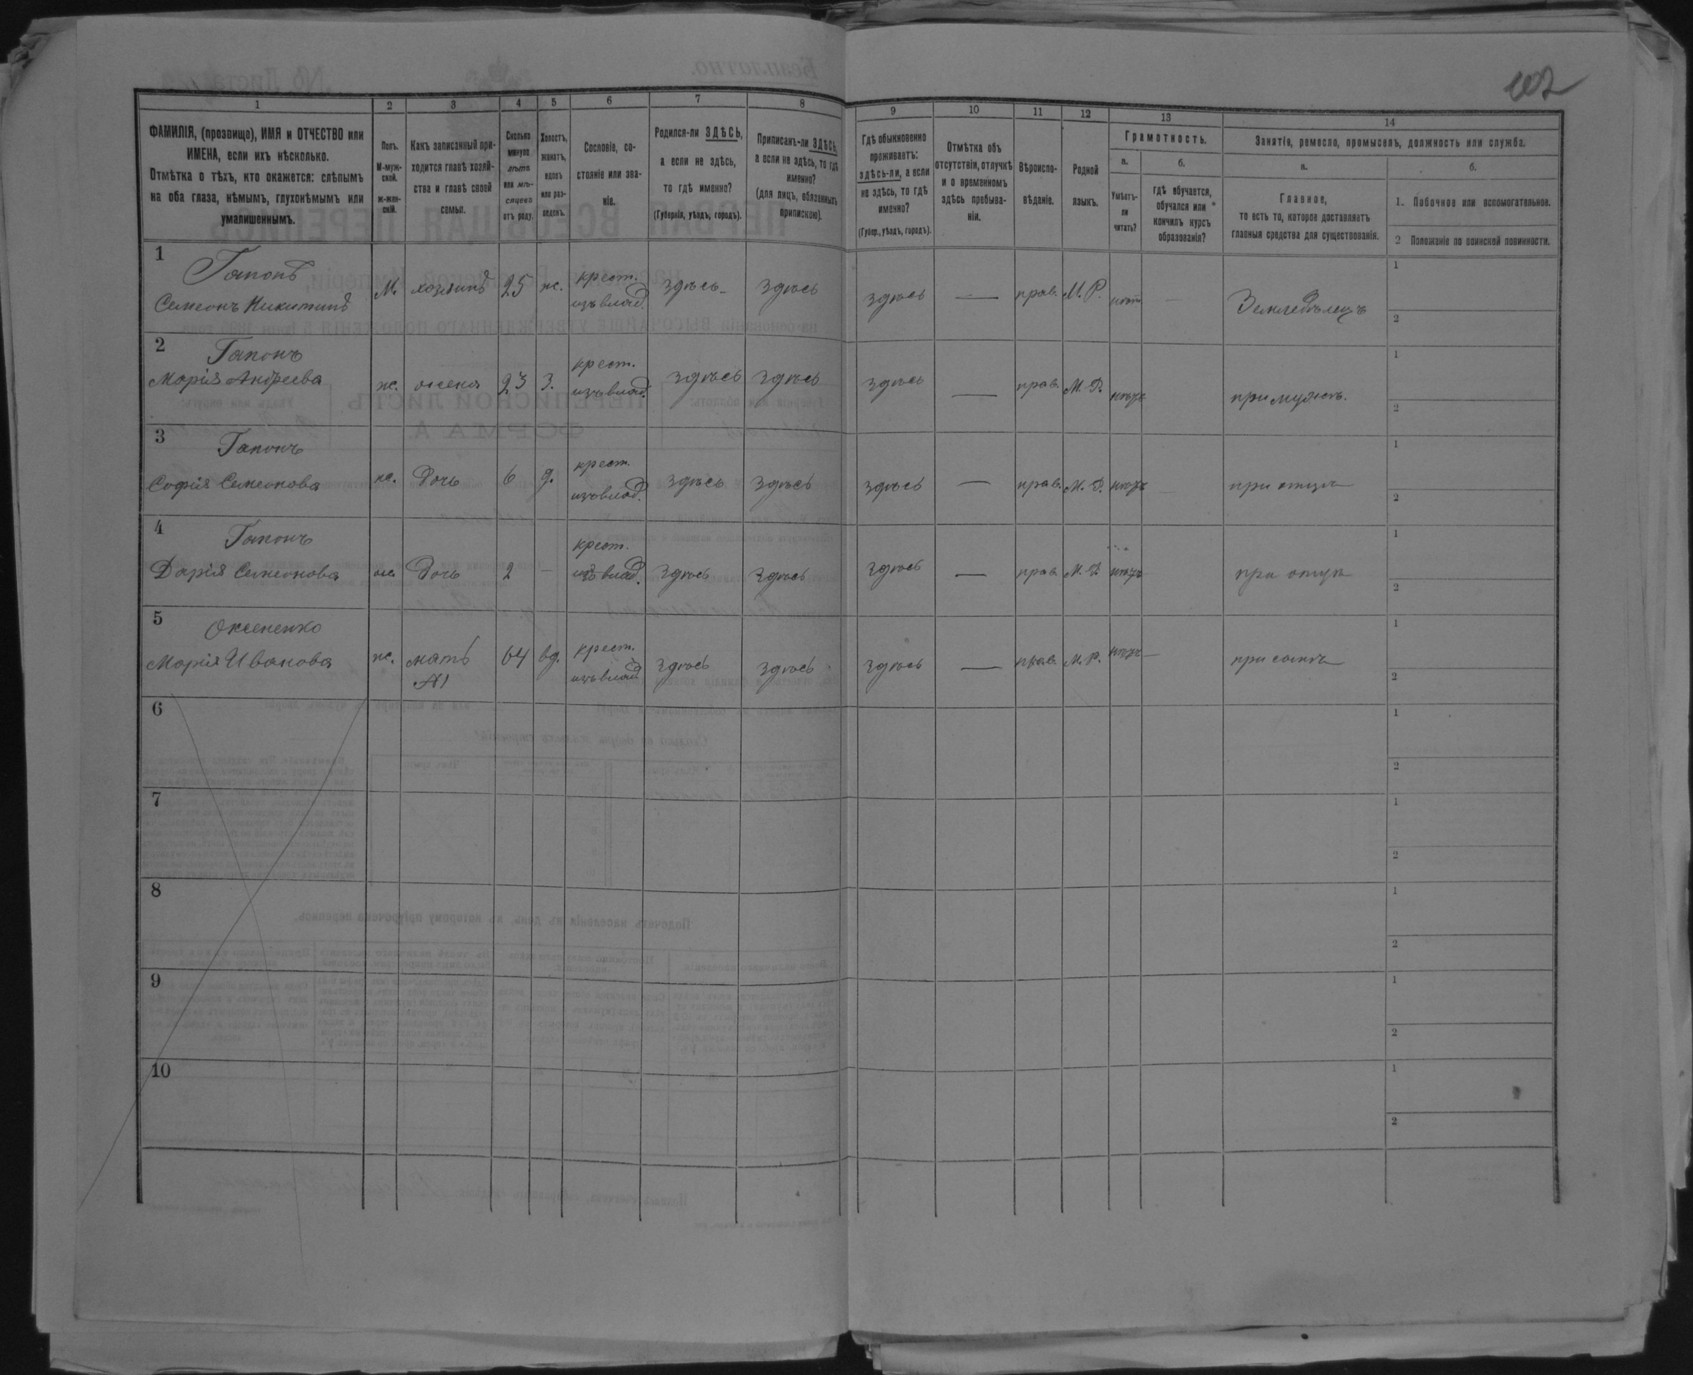 102
1 2 3 4 5 6 7 8 9 10 11 12 13 14
ФАМИЛІЯ, (прозвище), ИМЯ и ОТЧЕСТВО или
ИМЕНА, если ихъ нѣсколько.
Отмѣтка о тѣхъ, кто окажется: слѣпымъ
на оба глаза, нѣмымъ, глухонѣмымъ или
умалишеннымъ.
Полъ.
М-муж-
ской.
ж-жен-
скій.
Какъ записанный при-
ходится главѣ хозяй-
ства и главѣ своей
семьи.
Сколько
минуло
лѣтъ
или мѣ-
сяцевъ
отъ роду.
Холостъ,
женатъ,
вдовъ
или раз-
веденъ.
Сословіе, со-
стояніе или зва-
ніе.
Родился-ли ЗДѢСЬ,
а если не здѣсь,
то гдѣ именно?
(Губернія, уѣздъ, городъ).
Приписанъ-ли ЗДѢСЬ,
а если не здѣсь, то гдѣ
именно?
(для лицъ, обязанныхъ
припискою).
Гдѣ обыкновенно
проживаетъ:
здѣсь-ли, а если
не здѣсь, то гдѣ
именно?
(Губер., уѣздъ, городъ).
Отмѣтка объ
отсутствіи, отлучкѣ
и о временномъ
здѣсь пребыва-
ніи.
Вѣроиспо-
вѣданіе.
Родной
языкъ.
Грамотность.
а.
Умѣетъ-
ли
читать?
б.
гдѣ обучается,
обучался или
кончилъ курсъ
образованія?
Занятіе, ремесло, промыселъ, должность или служба.
а.
Главное,
то есть то, которое доставляетъ
главныя средства для существованія.
б.
1. Побочное или вспомогательное.
2 Положеніе по воинской повинности.
1
Гапонъ
Симеонъ Никитинъ М. хозяинъ 25 ж. крест. изъ влад. здѣсь здѣсь здѣсь — прав. М. Р. нѣтъ — Земледѣлецъ
1
2
2
Гапонъ
Марія Андреева ж. жена 23 З. крест. изъ влад. здѣсь здѣсь здѣсь — прав. М. Р. нѣтъ при мужѣ.
1
2
3
Гапонъ
Софія Симеонова ж. дочь 6 д. крест. изъ влад. здѣсь здѣсь здѣсь — прав. М. Р. нѣтъ при отцѣ
1
2
4
Гапонъ
Дарія Симеонова ж. дочь 2 — крест. изъ влад. здѣсь здѣсь здѣсь — прав. М. Р. нѣтъ при отцѣ
1
2
5
Оксененко
Марія Иванова ж. мать №1 64 вд. крест. изъ влад. здѣсь здѣсь здѣсь — прав. М. Р. нѣтъ — при сынѣ
1
2
6
1
2
7
1
2
8
1
2
9
1
2
10
1
2